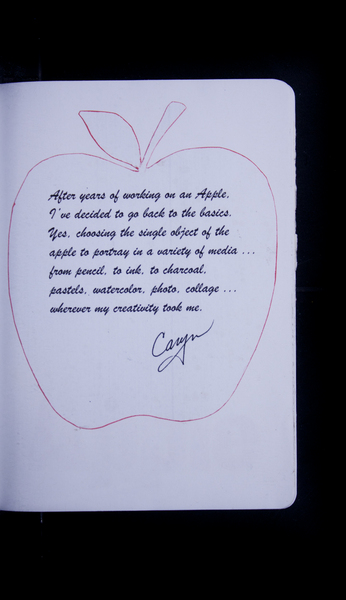 After years of working on an Apple,
I've decided to go back to the basics.
Yes, choosing the single object of the
apple to portray in a variety of media ...
from pencil, to ink, to charcoal,
pastels, watercolor, photo, collage ...
wherever my creativity took me.
Caryn